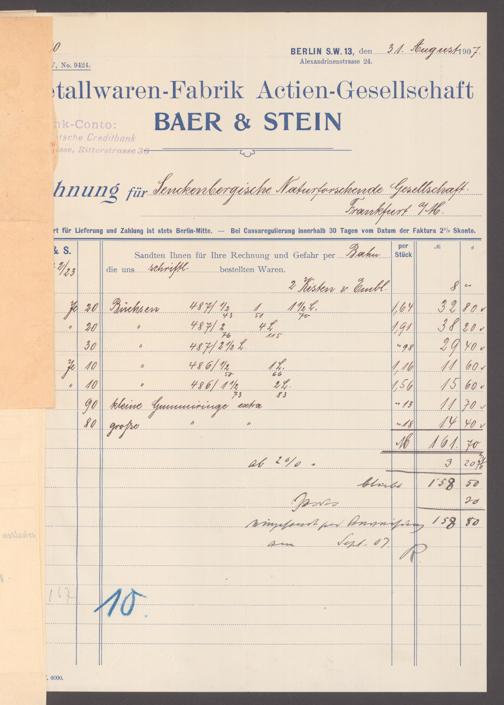 BERLIN S.W. 13, den 31. August 1907.
Alexandrinenstrasse 24.
No. 9424.
etallwaren-Fabrik Actien-Gesellschaft
BAER & STEIN
nk-Conto:
tsche Creditbank
asse, Ritterstrasse 36
hnung für Senckenbergische Naturforschende Gesellschaft.
Frankfurt a/M.
rt für Lieferung und Zahlung ist stets Berlin-Mitte. — Bei Cassaregulierung innerhalb 30 Tagen vom Datum der Faktura 2% Skonto.
& S. Sandten Ihnen für Ihre Rechnung und Gefahr per Bahn per Stück
2/23 die uns schriftl. bestellten Waren.
2 Kisten v. Embl. 8 "
Je 20 Büchsen 487/ 1 1½ L. 1,64 32 80
" 20 " 487/2 4 L. 1,91 38 20
30 " 487/2½ L. " 98 29 40
Je 10 " 486/½ 1 L. 1,16 11 60
" 10 " 486/1½ 2 L. 1,56 15 60
90 kleine Gummiringe extra " 13 11 70
80 große " " " 18 14 40
M 161. 70
ab 2% " 3 20
158 50
Porto 30
158 80
am Sept. 07.
R.
167
10.
4000.